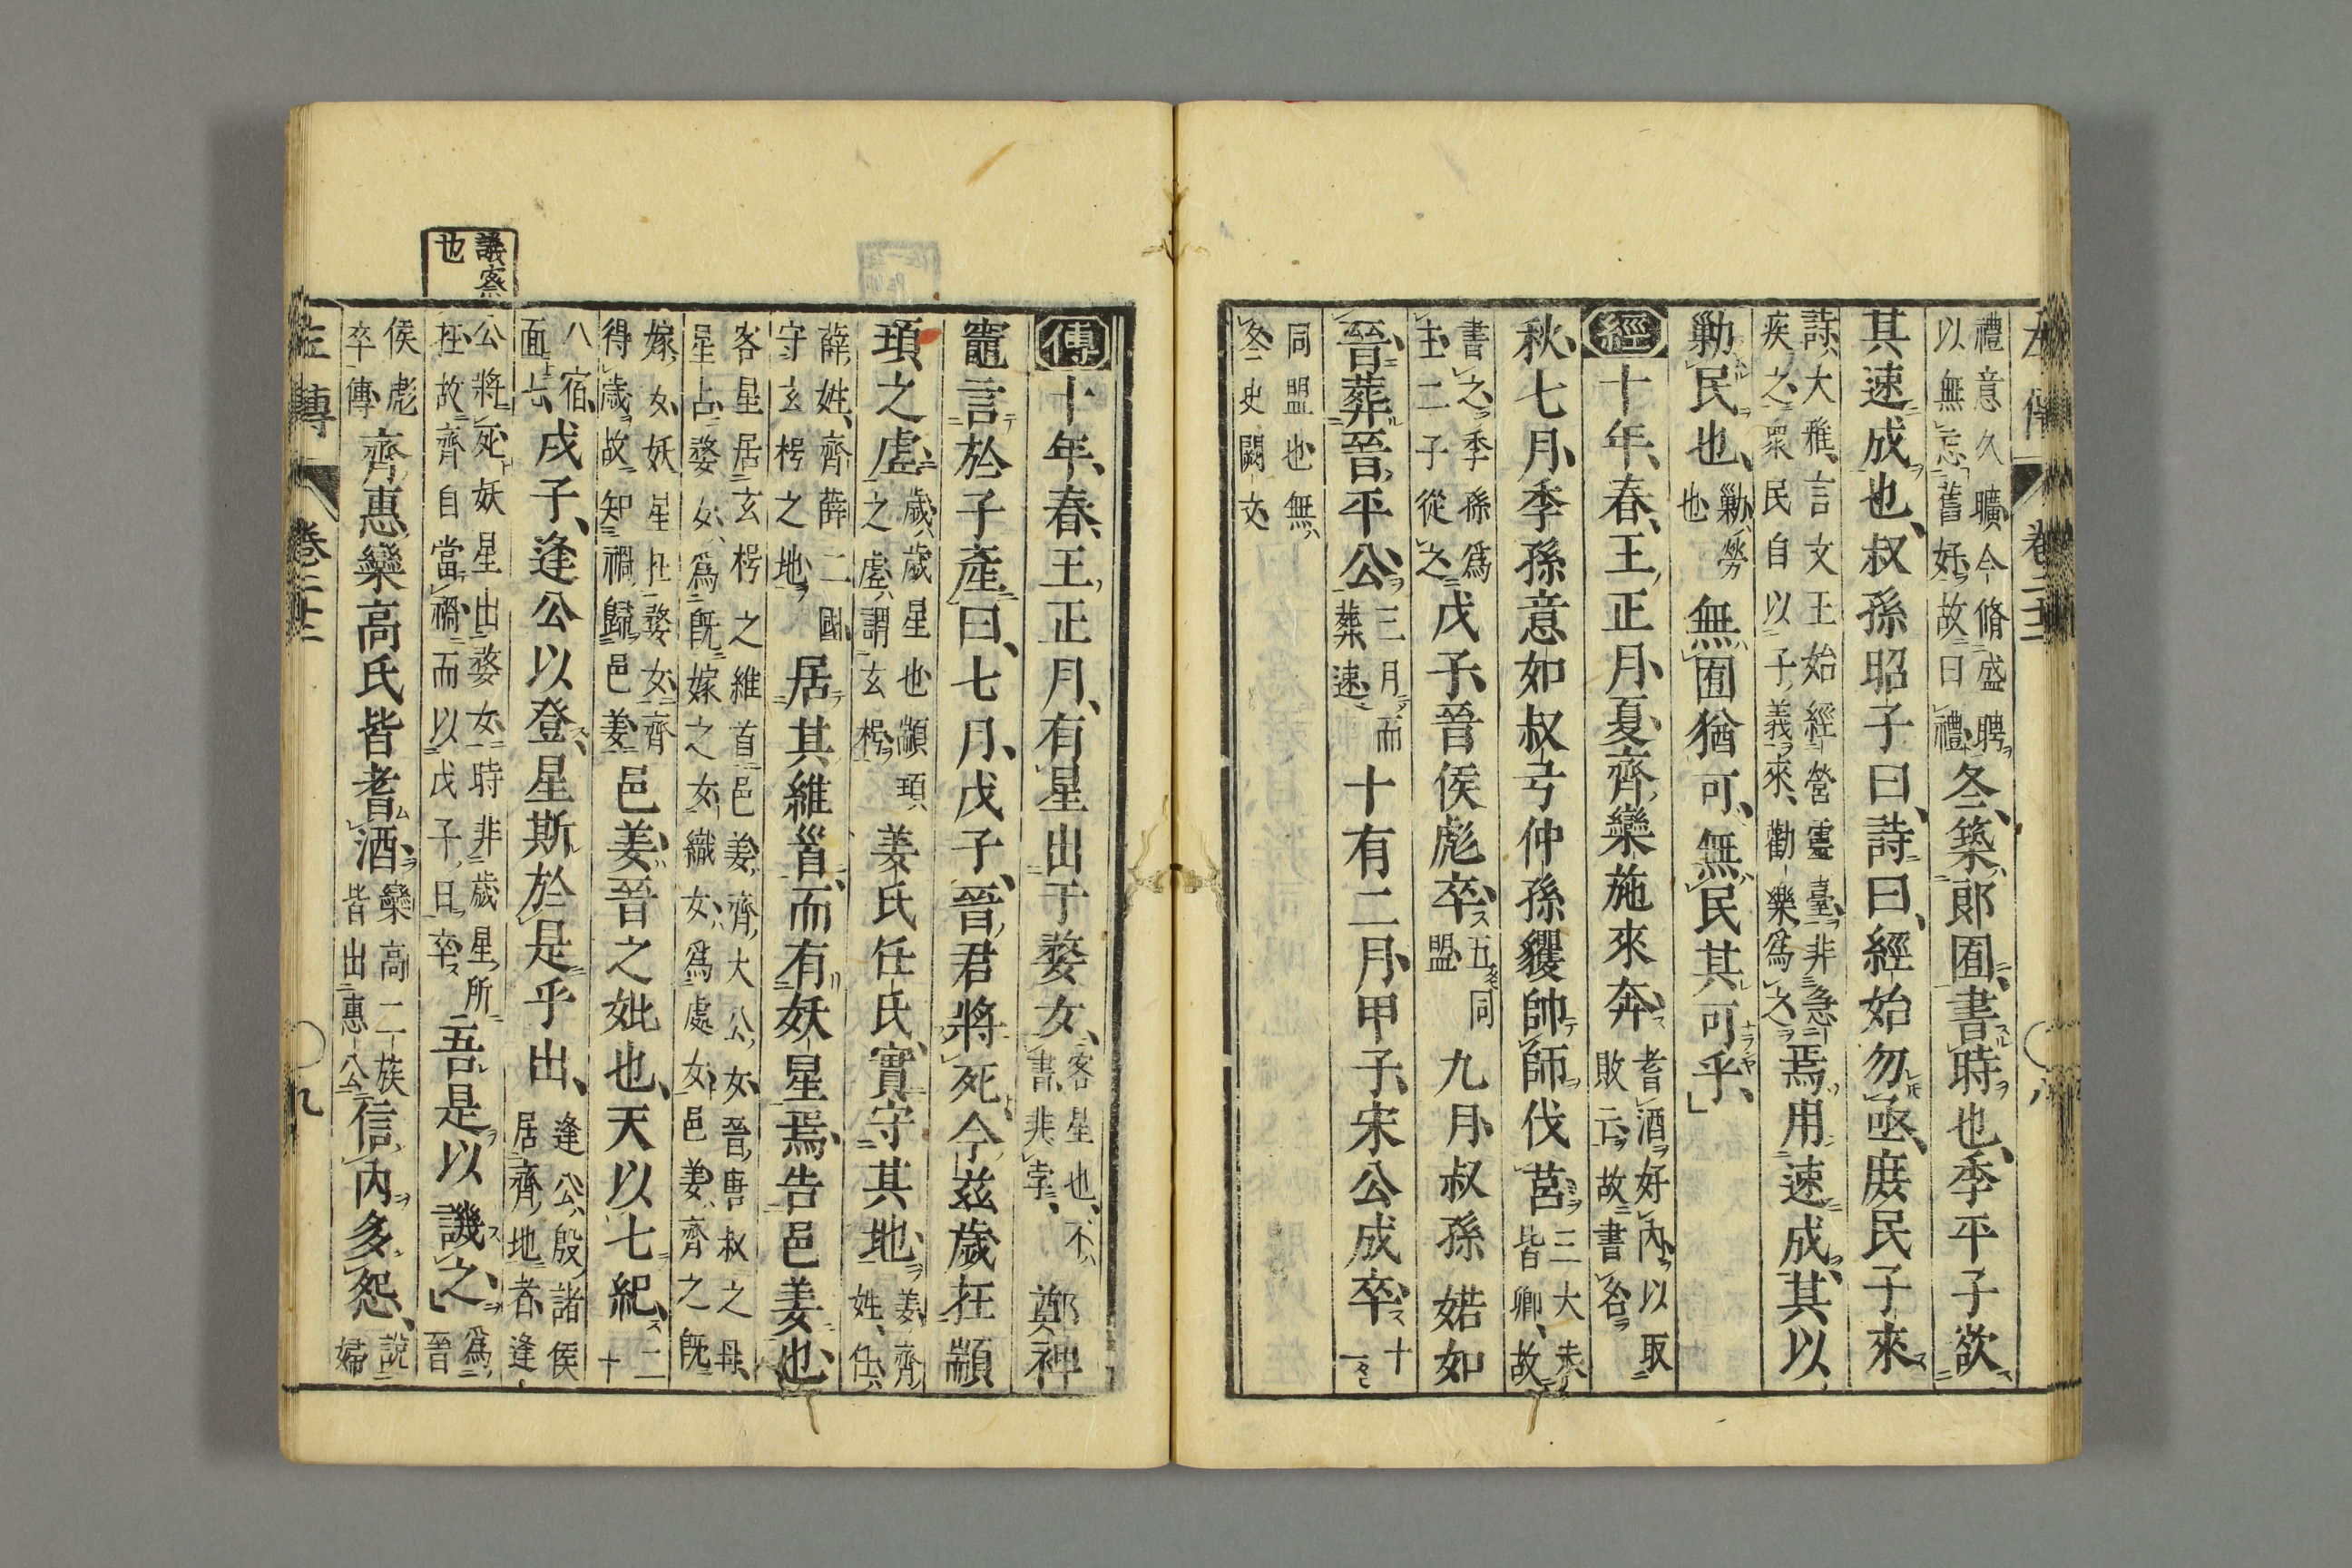 左傳 卷二十二 八
禮意久曠今脩盛聘
以無忘舊好故曰禮
冬築郎囿書時也季平子欲
其速成也叔孫昭子曰詩曰經始勿亟庶民子來
詩大雅言文王始經營靈臺非急
疾之衆民自以子義來勸樂爲之
焉用速成其以
勦民也
勦勞
也
無囿猶可無民其可乎
經十年春王正月夏齊欒施來奔
耆酒好內以取
敗亡故書名
秋七月季孫意如叔弓仲孫貜帥師伐莒
三大夫
皆卿故
書之季孫爲
主二子從之
戊子晉侯彪卒
五同
盟
九月叔孫婼如
晉葬晉平公
三月而
葬速
十有二月甲子宋公成卒
十一
同盟也無
冬史闕文
傳十年春王正月有星出于婺女
客星也不
書非孛
鄭裨
竈言於子產曰七月戊子晉君將死今茲歲在顓
頊之虛
歲歲星也顓頊
之虛謂玄枵
姜氏任氏實守其地
姜齊
姓任
薛姓齊薛二國
守玄枵之地
居其維首而有妖星焉告邑姜也
客星居玄枵之維首邑姜齊大公女晉唐叔之母
星占婺女爲旣嫁之女織女爲處女邑姜齊之旣
嫁女妖星在婺女齊
得歲故知禍歸邑姜
邑姜晉之妣也天以七紀
二
十
八宿
面七
戊子逢公以登星斯於是乎出
逢公殷諸侯
居齊地者逢
公將死妖星出婺女時非歲星所
在故齊自當禍而以戊子日卒
吾是以譏之
爲
晉
侯彪
卒傳
齊惠欒高氏皆耆酒
欒高二族
皆出惠公
信內多怨
說
婦
譏察
也
左傳 卷二十二 九